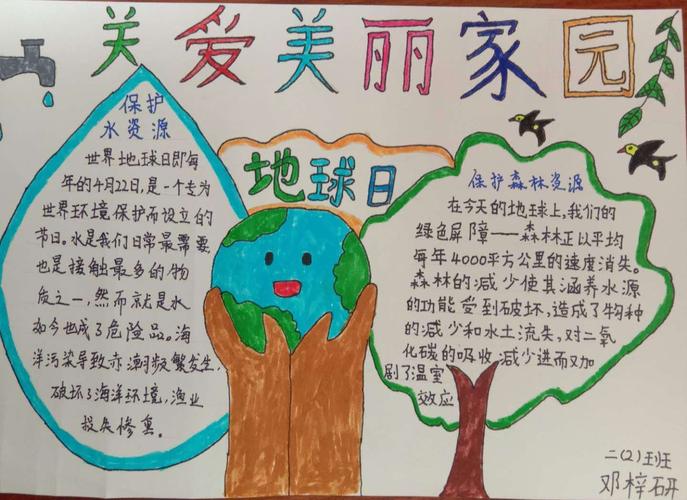 关爱美丽家园
地球日
保护
水资源
世界地球日即每
年的4月22日,是一个专为
世界环境保护而设立的
节日。水是我们日常最需要
也是接触最多的物
质之一,然而就是水
如今也成了危险品。海
洋污染导致赤潮频繁发生,
破坏了海洋环境,渔业
损失惨重。
保护森林资源
在今天的地球上,我们的
绿色屏障——森林正以平均
每年4000平方公里的速度消失。
森林的减少使其涵养水源
的功能受到破坏,造成了物种
的减少和水土流失,对二氧
化碳的吸收减少进而又加
剧了温室
效应
二(2)班
邓梓研